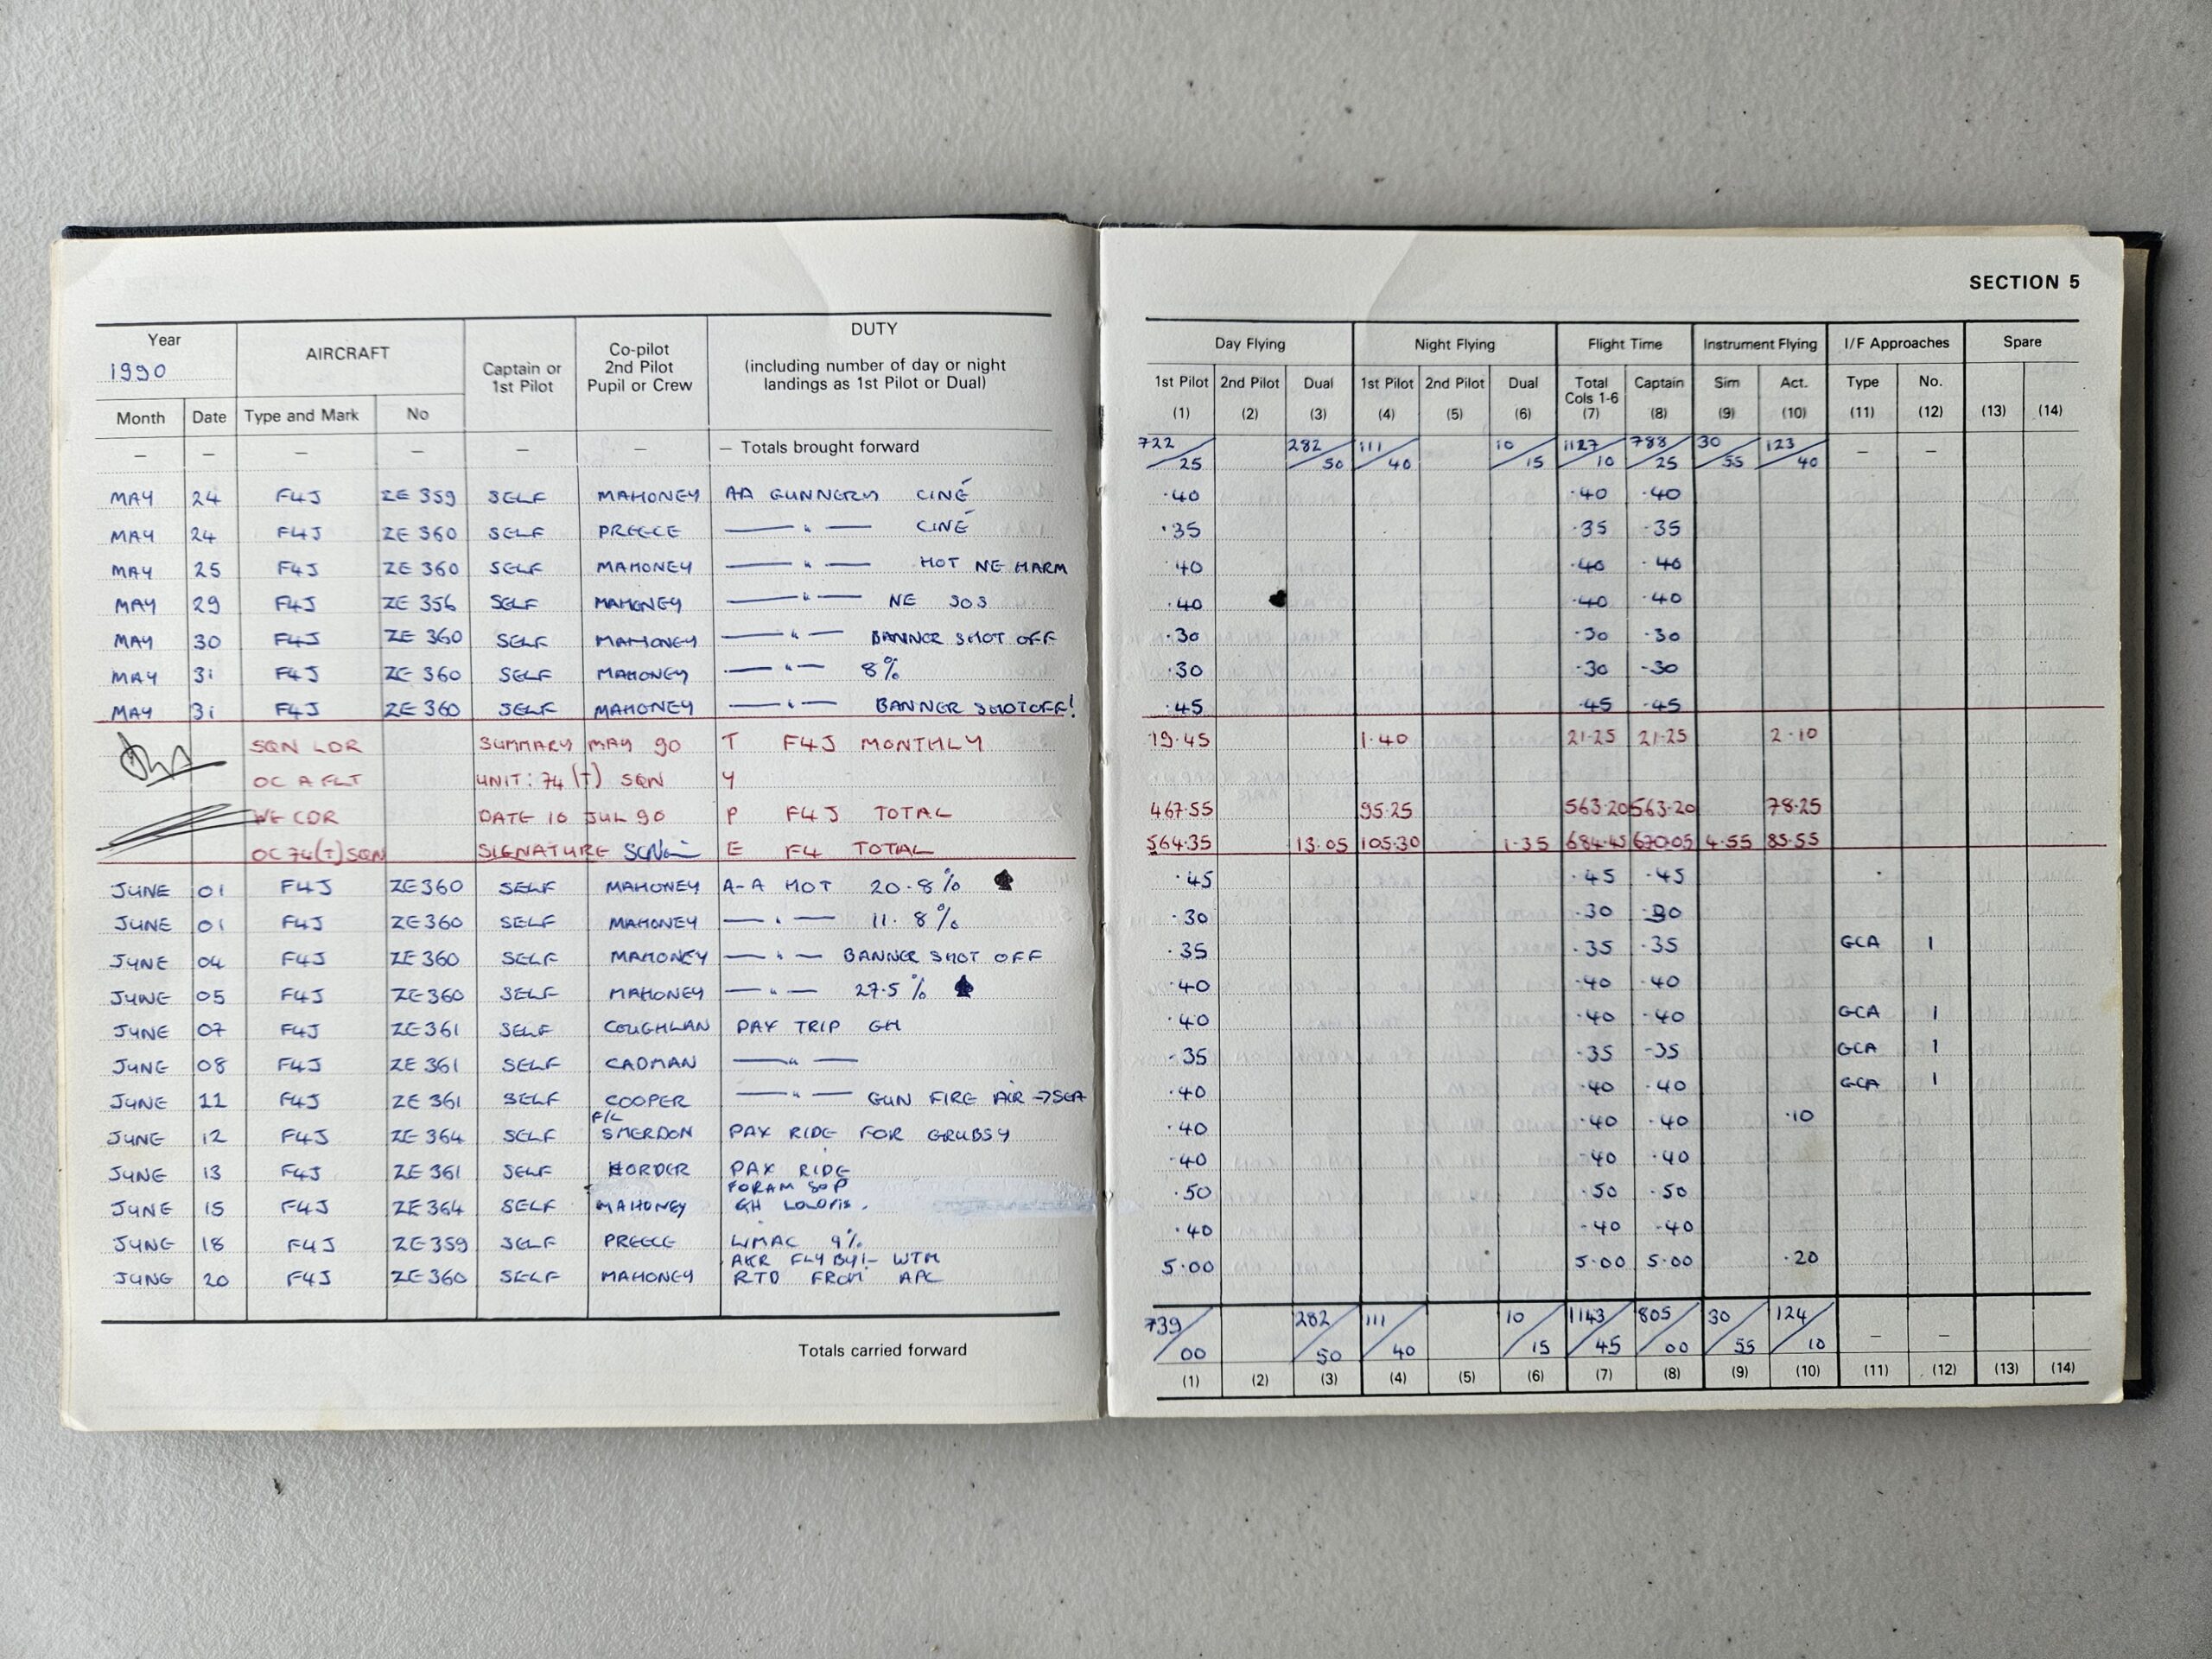 SECTION 5
Year AIRCRAFT Captain or 1st Pilot Co-pilot 2nd Pilot Pupil or Crew DUTY (including number of day or night landings as 1st Pilot or Dual) Day Flying Night Flying Flight Time Instrument Flying I/F Approaches Spare
1990
Month Date Type and Mark No 1st Pilot 2nd Pilot Dual 1st Pilot 2nd Pilot Dual Total Cols 1-6 Captain Sim Act. Type No.
(1) (2) (3) (4) (5) (6) (7) (8) (9) (10) (11) (12) (13) (14)
— — — — — — — Totals brought forward 722/25 282/50 111/40 10/15 1127/10 788/25 30/55 123/40 — —
MAY 24 F4J ZE 359 SELF MAHONEY AA GUNNERY CINÉ ·40 ·40 ·40
MAY 24 F4J ZE 360 SELF PREECE —— " —— CINÉ ·35 ·35 ·35
MAY 25 F4J ZE 360 SELF MAHONEY —— " —— HOT NE HARM ·40 ·40 ·40
MAY 29 F4J ZE 356 SELF MAHONEY —— " —— NE SOS ·40 ·40 ·40
MAY 30 F4J ZE 360 SELF MAHONEY —— " —— BANNER SHOT OFF ·30 ·30 ·30
MAY 31 F4J ZE 360 SELF MAHONEY —— " —— 8% ·30 ·30 ·30
MAY 31 F4J ZE 360 SELF MAHONEY —— " —— BANNER SHOT OFF! ·45 ·45 ·45
SQN LDR SUMMARY MAY 90 T F4J MONTHLY 19·45 1·40 21·25 21·25 2·10
OC A FLT UNIT: 74 (T) SQN Y
WG CDR DATE 10 JUL 90 P F4J TOTAL 467·55 95·25 563·20 563·20 78·25
OC 74(T) SQN SIGNATURE E F4 TOTAL 564·35 13·05 105·30 1·35 684·45 670·05 4·55 85·55
JUNE 01 F4J ZE360 SELF MAHONEY A-A HOT 20·8% ♠ ·45 ·45 ·45
JUNE 01 F4J ZE360 SELF MAHONEY —— " —— 11·8% ·30 ·30 ·30
JUNE 04 F4J ZE360 SELF MAHONEY —— " —— BANNER SHOT OFF ·35 ·35 ·35 GCA 1
JUNE 05 F4J ZE360 SELF MAHONEY —— " —— 27·5% ♠ ·40 ·40 ·40
JUNE 07 F4J ZE361 SELF COUGHLAN PAX TRIP GH ·40 ·40 ·40 GCA 1
JUNE 08 F4J ZE361 SELF CADMAN —— " —— ·35 ·35 ·35 GCA 1
JUNE 11 F4J ZE361 SELF COOPER —— " —— GUN FIRE AIR → SEA ·40 ·40 ·40 GCA 1
JUNE 12 F4J ZE364 SELF F/L SMERDON PAX RIDE FOR GRUBSY ·40 ·40 ·40 ·10
JUNE 13 F4J ZE361 SELF HORDER PAX RIDE ·40 ·40 ·40
JUNE 15 F4J ZE364 SELF MAHONEY GH ·50 ·50 ·50
JUNE 18 F4J ZE359 SELF PREECE 9% ·40 ·40 ·40
JUNE 20 F4J ZE360 SELF MAHONEY AKR FLY BY!- WTM RTD FROM APC 5·00 5·00 5·00 ·20
Totals carried forward 739/00 282/50 111/40 10/15 1143/45 805/00 30/55 124/10 — —
(1) (2) (3) (4) (5) (6) (7) (8) (9) (10) (11) (12) (13) (14)